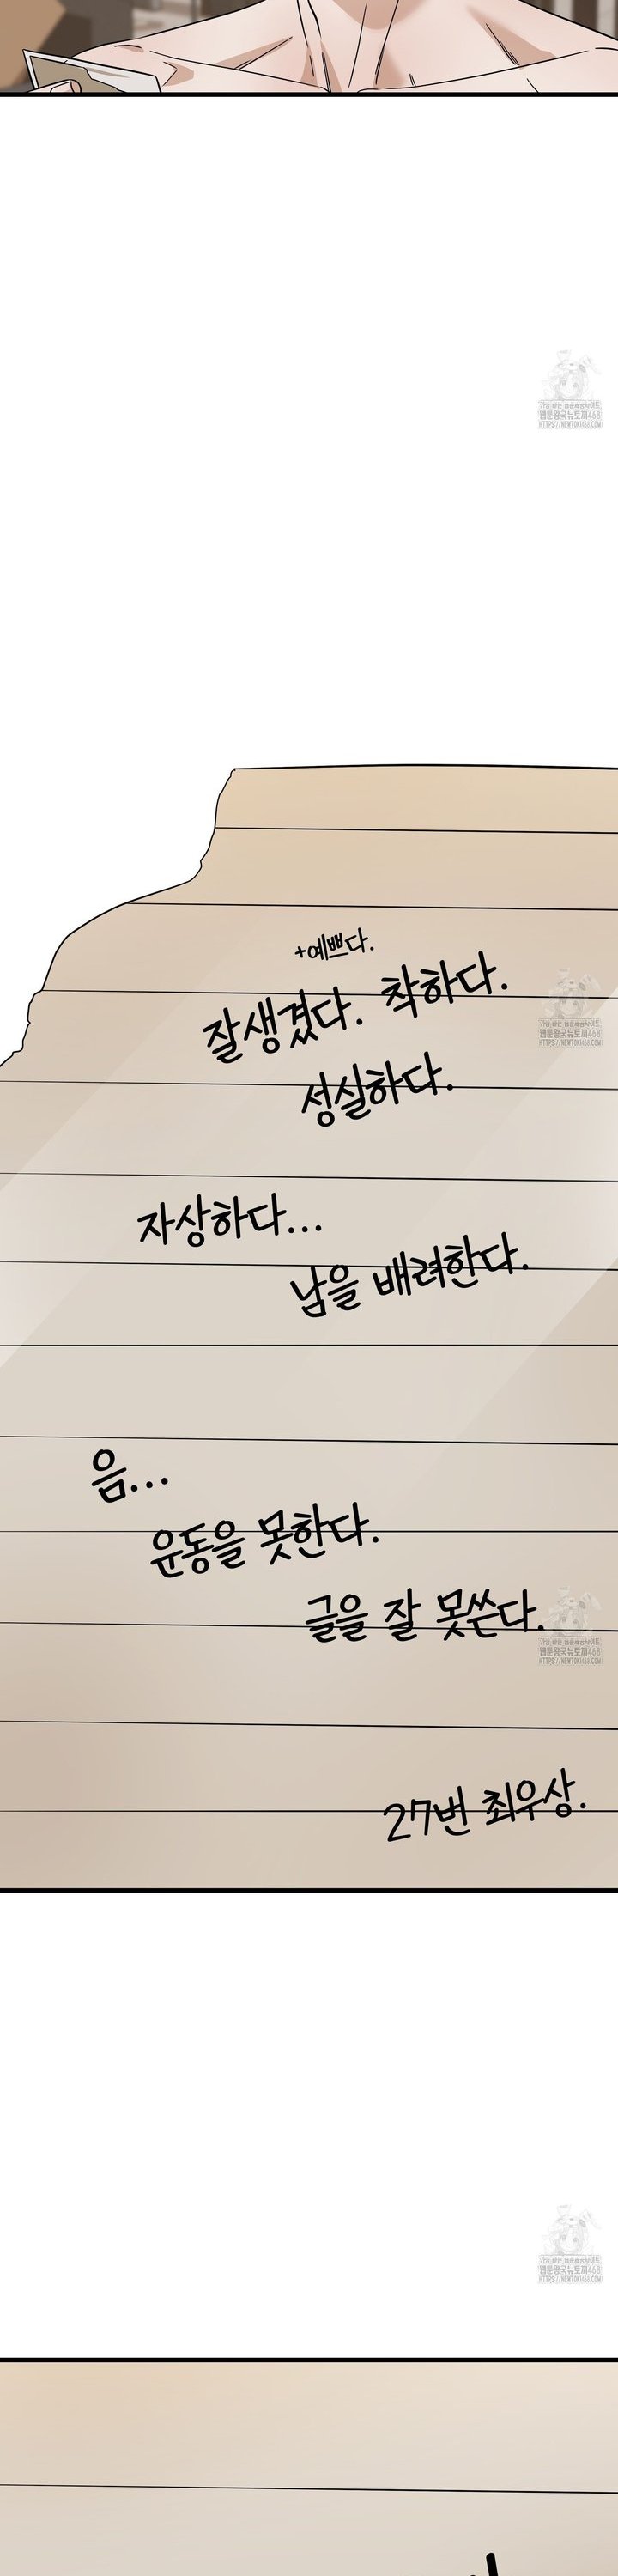 +예쁘다.
잘생겼다. 착하다.
성실하다.
자상하다...
남을 배려한다.
음...
운동을 못한다.
글을 잘 못쓴다.
27번 최우상.
웹툰왕국뉴토끼468
HTTPS://NEWTOKI468.COM
웹툰왕국뉴토끼468
HTTPS://NEWTOKI468.COM
웹툰왕국뉴토끼468
HTTPS://NEWTOKI468.COM
웹툰왕국뉴토끼468
HTTPS://NEWTOKI468.COM